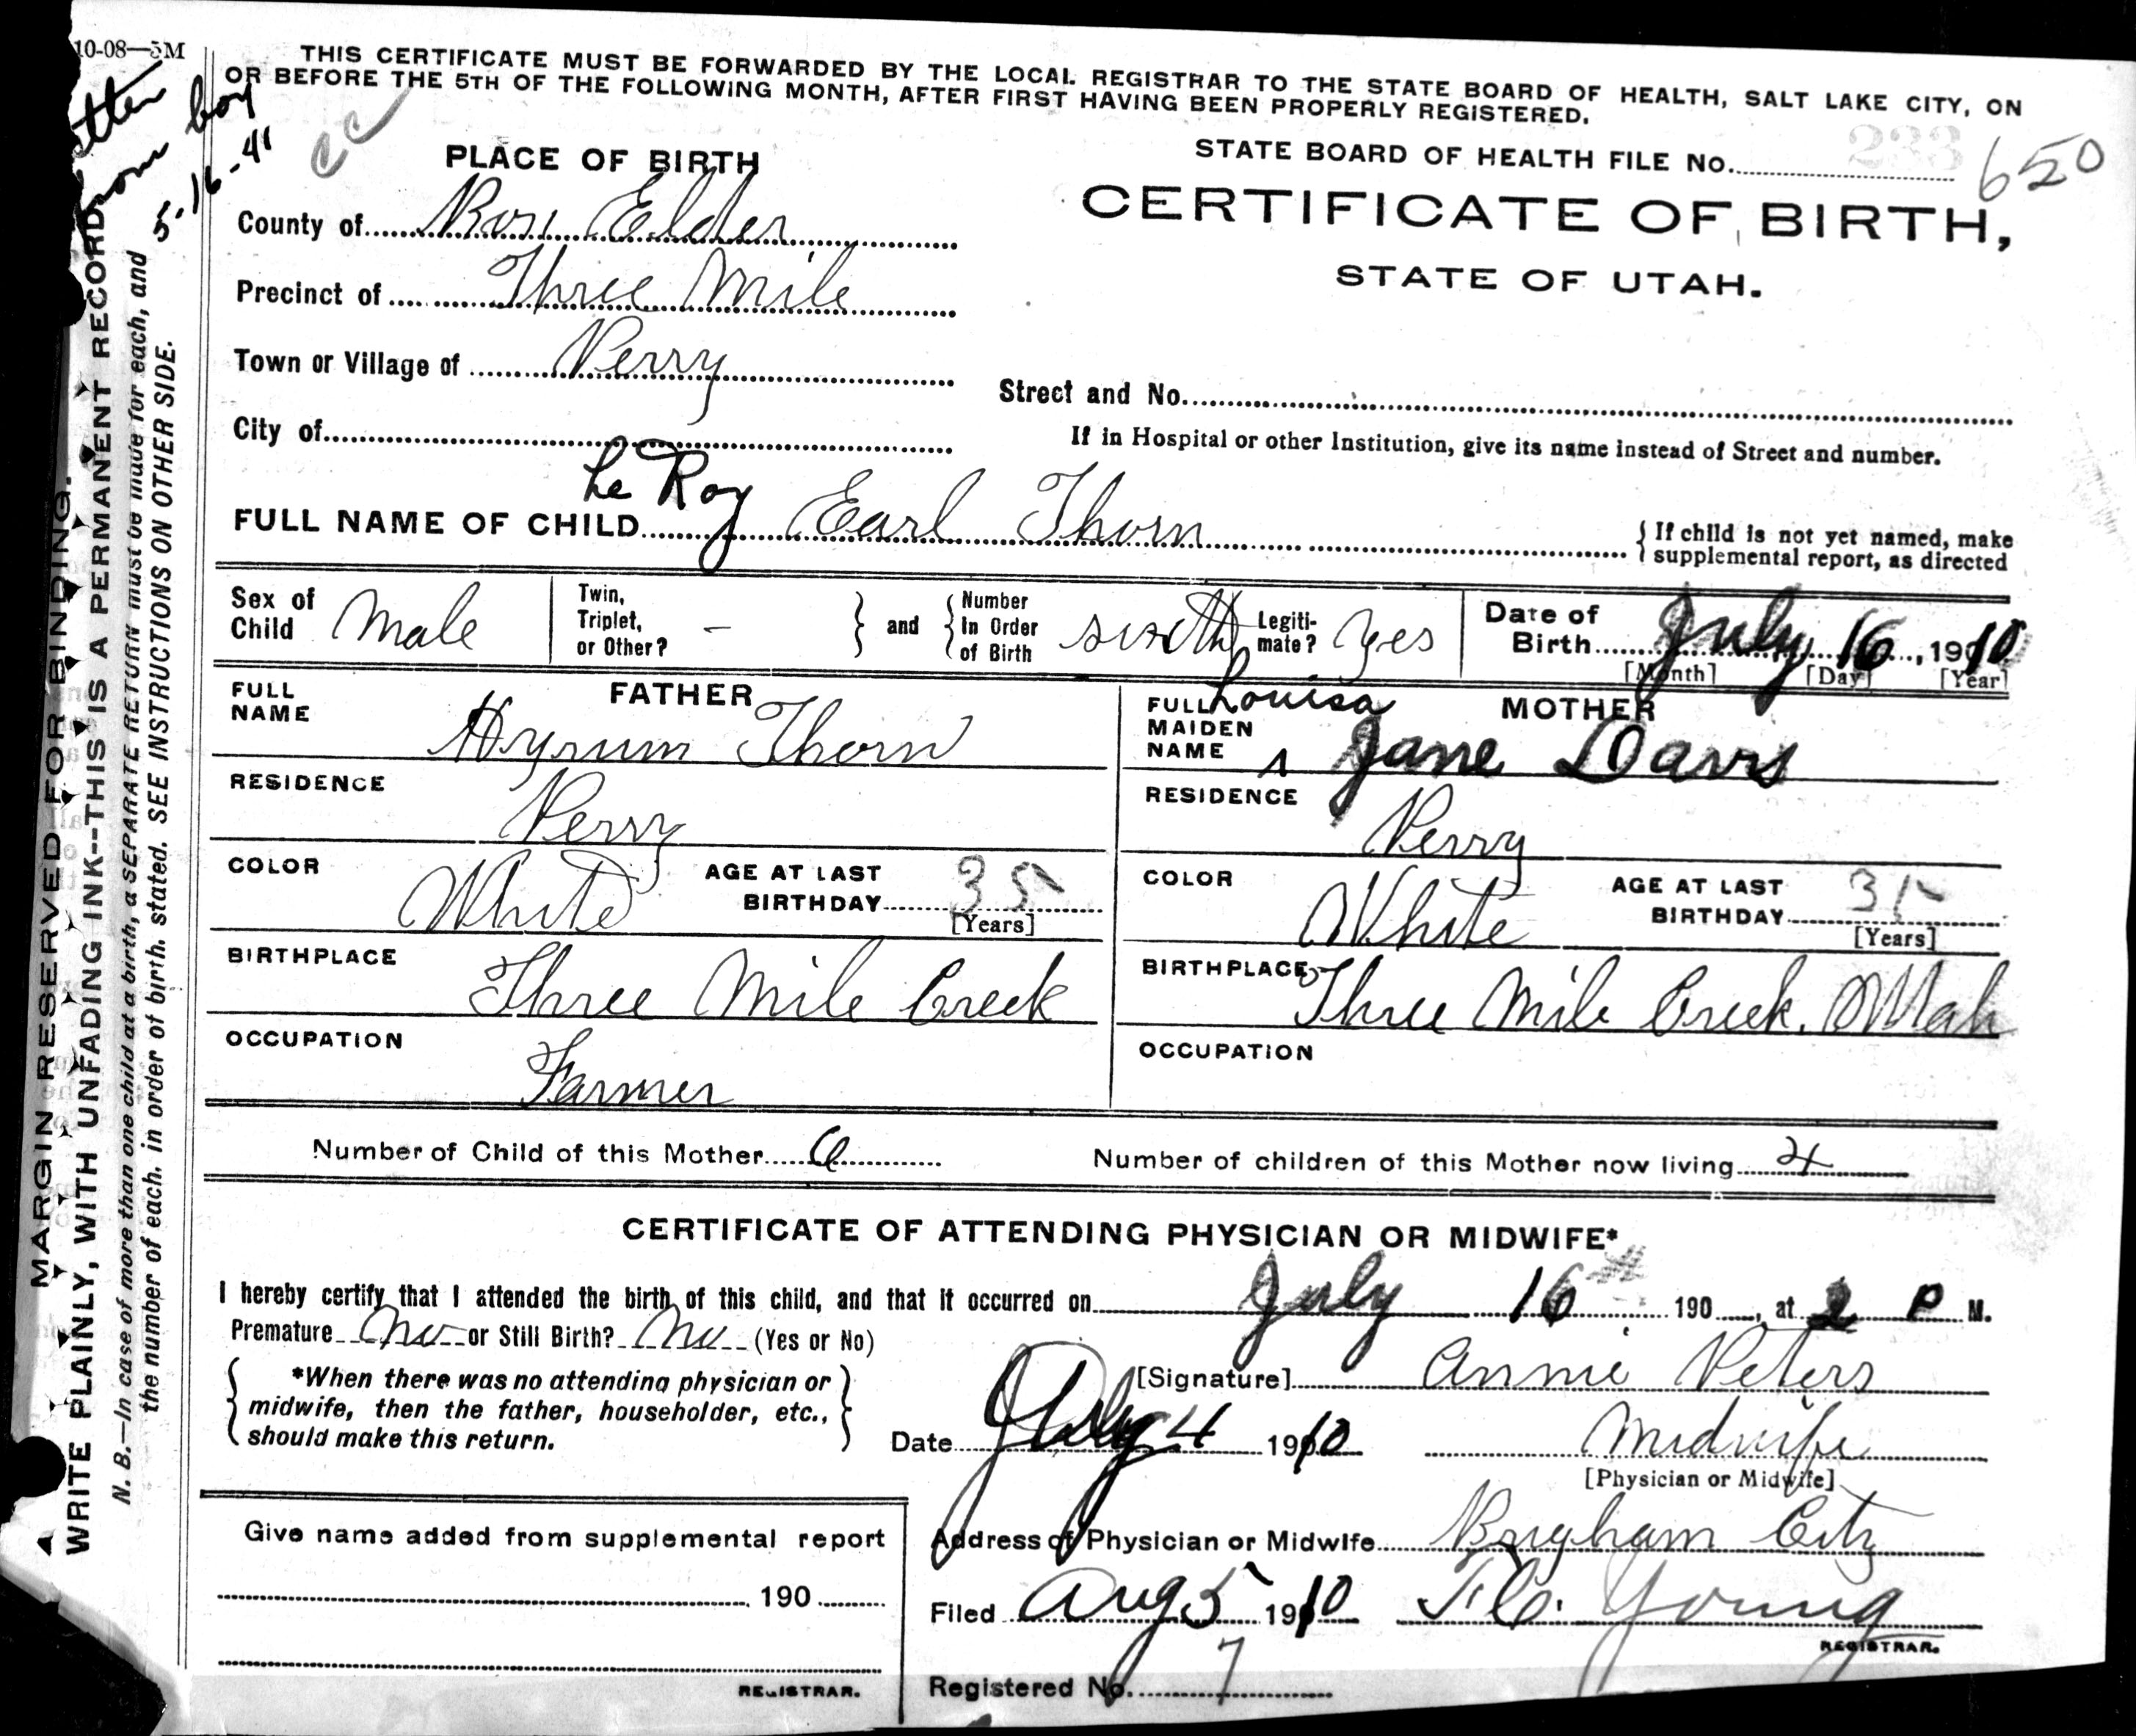 10-08—5M
THIS CERTIFICATE MUST BE FORWARDED BY THE LOCAL REGISTRAR TO THE STATE BOARD OF HEALTH, SALT LAKE CITY, ON
OR BEFORE THE 5TH OF THE FOLLOWING MONTH, AFTER FIRST HAVING BEEN PROPERLY REGISTERED.
from boy
5-16-41
CC
STATE BOARD OF HEALTH FILE No. 233 650
CERTIFICATE OF BIRTH,
STATE OF UTAH.
PLACE OF BIRTH
County of Box Elder
Precinct of Three Mile
Town or Village of Perry
Street and No.
City of
If in Hospital or other Institution, give its name instead of Street and number.
Le Roy
FULL NAME OF CHILD Earl Thorn
{ If child is not yet named, make
supplemental report, as directed
Sex of Child Male
Twin, Triplet, or Other? -
and
Number In Order of Birth sixth
Legitimate? Yes
Date of Birth July 16, 1910
[Month] [Day] [Year]
FATHER
FULL NAME Hyrum Thorn
RESIDENCE Perry
COLOR White
AGE AT LAST BIRTHDAY 35
[Years]
BIRTHPLACE Three Mile Creek
OCCUPATION Farmer
MOTHER
FULL MAIDEN NAME Louisa Jane Davis
RESIDENCE Perry
COLOR White
AGE AT LAST BIRTHDAY
[Years]
BIRTHPLACE Three Mile Creek, Utah
OCCUPATION
Number of Child of this Mother 6
Number of children of this Mother now living 4
CERTIFICATE OF ATTENDING PHYSICIAN OR MIDWIFE*
I hereby certify that I attended the birth of this child, and that it occurred on July 16th 190, at 2 P M.
Premature No or Still Birth? No (Yes or No)
*When there was no attending physician or
midwife, then the father, householder, etc.,
should make this return.
[Signature] Annie Peters
Date July 4 1910
Midwife
[Physician or Midwife]
Address of Physician or Midwife Brigham City
Filed Aug 5 1910
Young
REGISTRAR.
Registered No. 7
Give name added from supplemental report
190
REGISTRAR.
MARGIN RESERVED FOR BINDING.
WRITE PLAINLY, WITH UNFADING INK--THIS IS A PERMANENT RECORD
N. B.—In case of more than one child at a birth, a SEPARATE RETURN must be made for each, and
the number of each, in order of birth, stated. SEE INSTRUCTIONS ON OTHER SIDE.